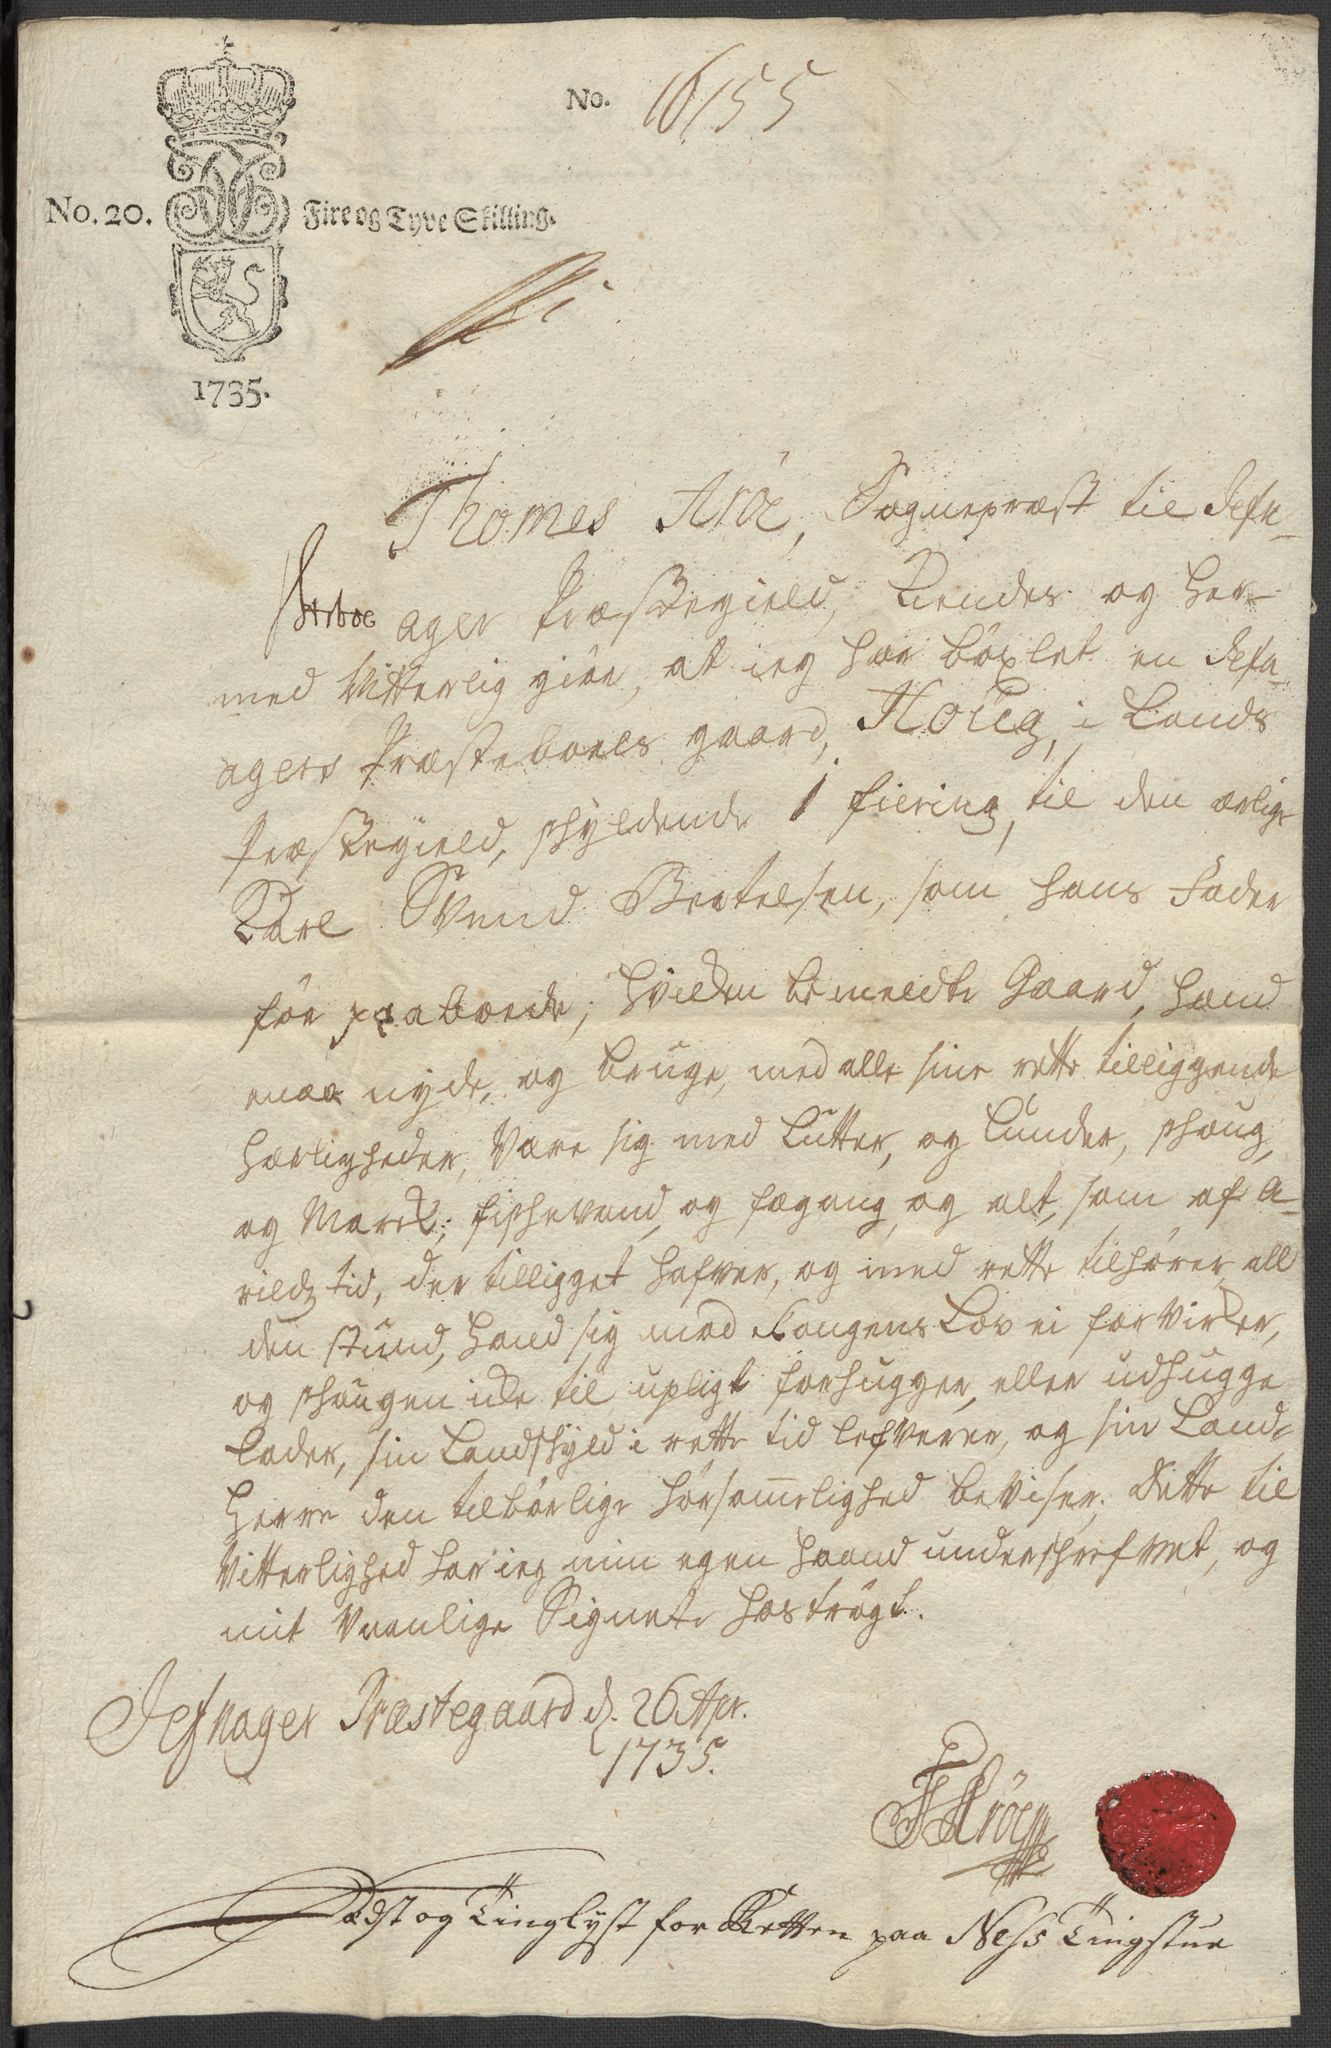 No. 16155
No. 20. Fire og Tyve Skilling.
1735.
Thomes Aröe, Sognepræst til Jefn-
ager Præstegield, Kiendes og her-
med Vitterlig giör, at ieg har böxlet en Jefn-
agers Præsteboels gaard, Houg, i Lands
Præstegield, schyldende 1 fiering, til den ærlige
Karl Svend Bertelsen, som hans Fader
för paaboede, hvilken bemeldte Gaard, hand
maa nyde, og bruge, med alle sine rette tilliggende
herligheder, Være sig med Lutter, og Lunder, schoug,
og Marck, fischevand, og fægang, og alt, som af A-
rildz tid, der tilligget hafver, og med rette tilhörer, all
den stund, hand sig mod Kongens Lov ei forVirker,
og schougen icke til upligt forhugger, eller udhugge
lader, sin Landschyld i rette tid lefverer, og sin Land-
Herre den tilbörlige hörsommelighed beViser. Dette til
Vitterlighed har ieg min egen haand underschrefvet, og
mit Vaanlige Signete hoströgt.
Jefnager Præstegaard d. 26 Apr.
1735.
T Aröe
Læst og Tinglyst for Retten paa Ness Tingstue